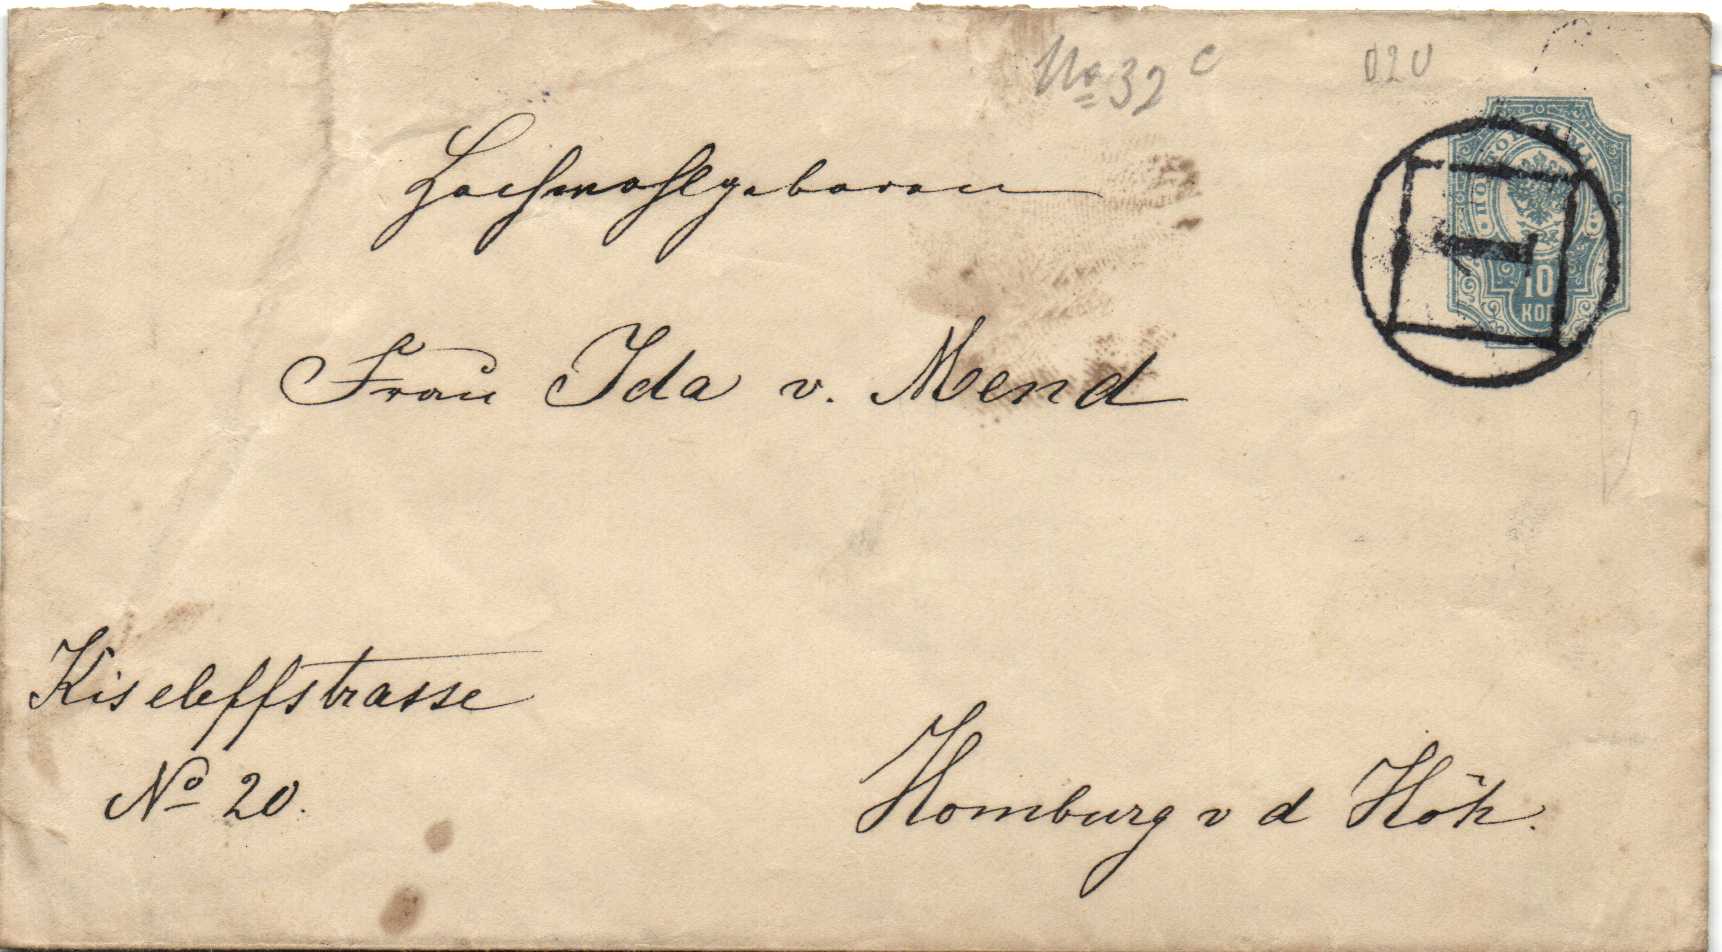 No 32 c
020
ПОЧТО МА
1
10
КОП
Hochwohlgeboren
Frau Ida v. Mend
Kiseleffstrasse
No 20.
Homburg v d Höh.